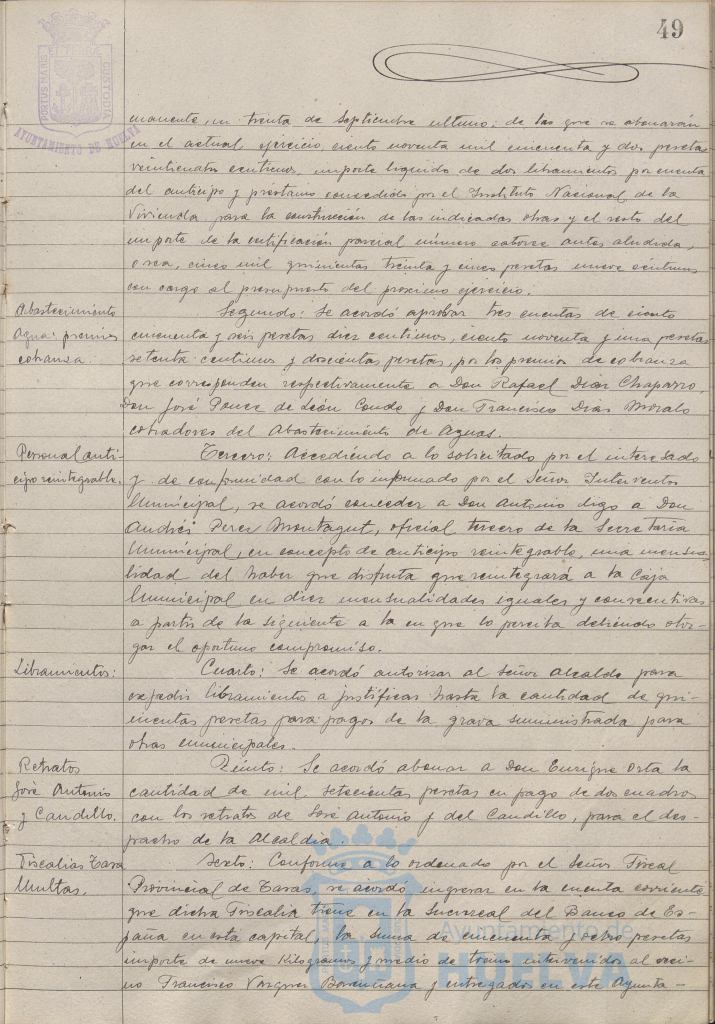 49
PORTUS MARIS ET TERRAE CUSTODIA
AYUNTAMIENTO DE HUELVA
manente, en treinta de Septiembre ultimo; de las que se abonarán
en el actual ejercicio, ciento noventa mil cincuenta y dos pesetas
veinticuatro centimos, importe liquido de dos libramientos por cuenta
del anticipo y prestamo concedido por el Instituto Nacional de la
Vivienda para la construcción de las indicadas obras y el resto del
importe de la certificación parcial número catorce antes aludida,
o sea, cinco mil quinientas treinta y cinco pesetas nueve céntimos
con cargo al presupuesto del proximo ejercicio.
Abastecimiento
Agua: premios
cobranza.
Segundo: Se acordó aprobar tres cuentas de ciento
cincuenta y seis pesetas diez centimos, ciento noventa y una pesetas
setenta centimos y doscientas pesetas, por los premios de cobranza
que corresponden respectivamente a Don Rafael Diaz Chaparro,
Don José Ponce de León Conde y Don Francisco Dias Morals
cobradores del Abastecimiento de Aguas.
Personal anti-
cipo reintegrable.
Tercero: Accediendo a lo solicitado por el interesado
y de conformidad con lo informado por el Señor Interventor
Municipal, se acordó conceder a Don Antonio digo a Don
Andrés Perez Montagut, oficial tercero de la Secretaria
Municipal, en concepto de anticipo reintegrable, una mensua-
lidad del haber que disfruta que reintegrará a la Caja
Municipal en diez mensualidades iguales y consecutivas
a partir de la siguiente a la en que lo perciba debiendo otor-
gar el oportuno compromiso.
Libramientos:
Cuarto: Se acordó autorizar al señor Alcalde para
expedir libramientos a justificar hasta la cantidad de qui-
nientas pesetas para pagos de la grava suministrada para
obras municipales.
Retratos
José Antonio
y Caudillo.
Quinto: Se acordó abonar a Don Enrique Orta la
cantidad de mil setecientas pesetas en pago de dos cuadros
con los retratos de José Antonio y del Caudillo, para el des-
pacho de la Alcaldia.
Fiscalias Tasa
Multas.
Sexto: Conforme a lo ordenado por el Señor Fiscal
Provincial de Tasas, se acordó ingresar en la cuenta corriente
que dicha Fiscalia tiene en la Sucursal del Banco de Es-
paña en esta capital, la suma de cincuenta y ocho pesetas
importe de nueve Kilogramos y medio de trigo intervenidos al veci-
no Francisco Vazquez y entregados en este Ayunta-
Ayuntamiento de
HUELVA